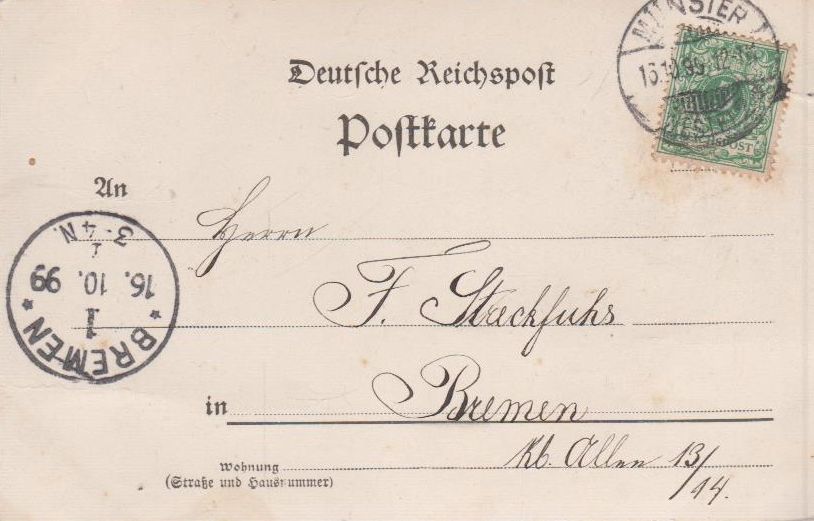 Deutsche Reichspost
Postkarte
MÜNSTER
An
Herrn
F. Streckfuhs
in Bremen
Wohnung
(Straße und Hausnummer)
Kl. Allee 13/14.
BREMEN
1
16. 10. 99
3-4 N.